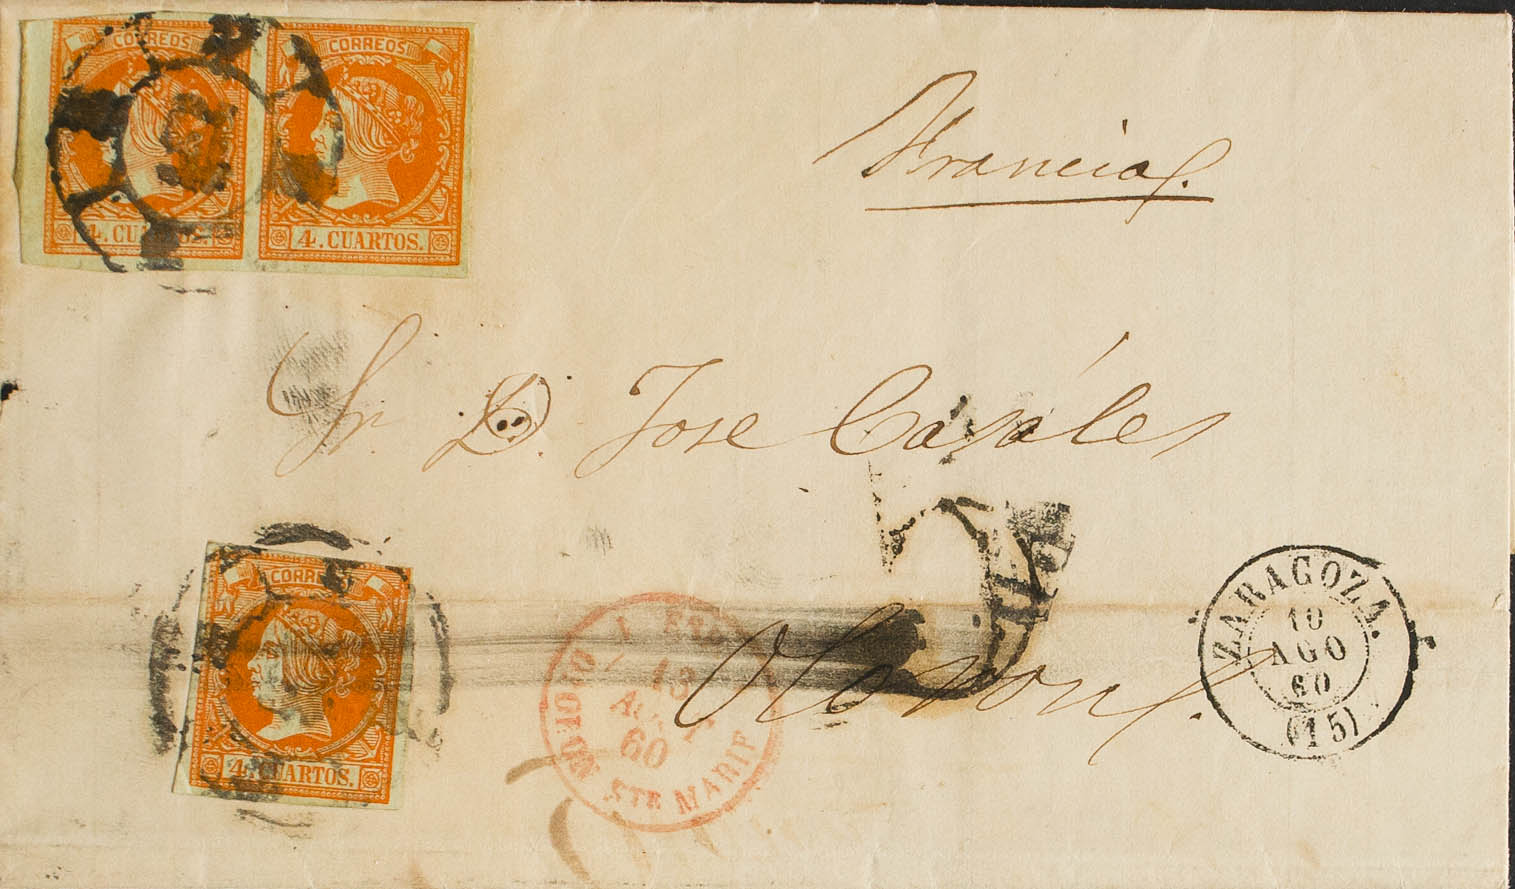 CORREOS
CORREOS
4. CUARTOS.
4. CUARTOS.
Francia
Sr. D. Jose Casáles
CORREOS
4. CUARTOS.
13
AOUT
60
STE MARIE
Oloron
ZARAGOZA.
10
AGO
60
(15)